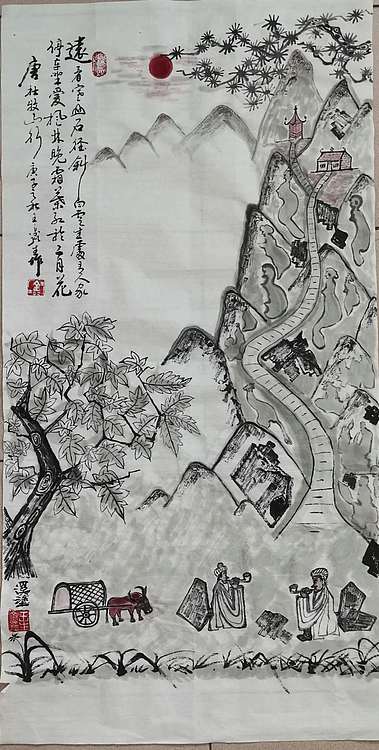 遠上寒山石徑斜白雲生處有人家
停車坐愛楓林晚霜葉紅於二月花
唐杜牧山行庚子